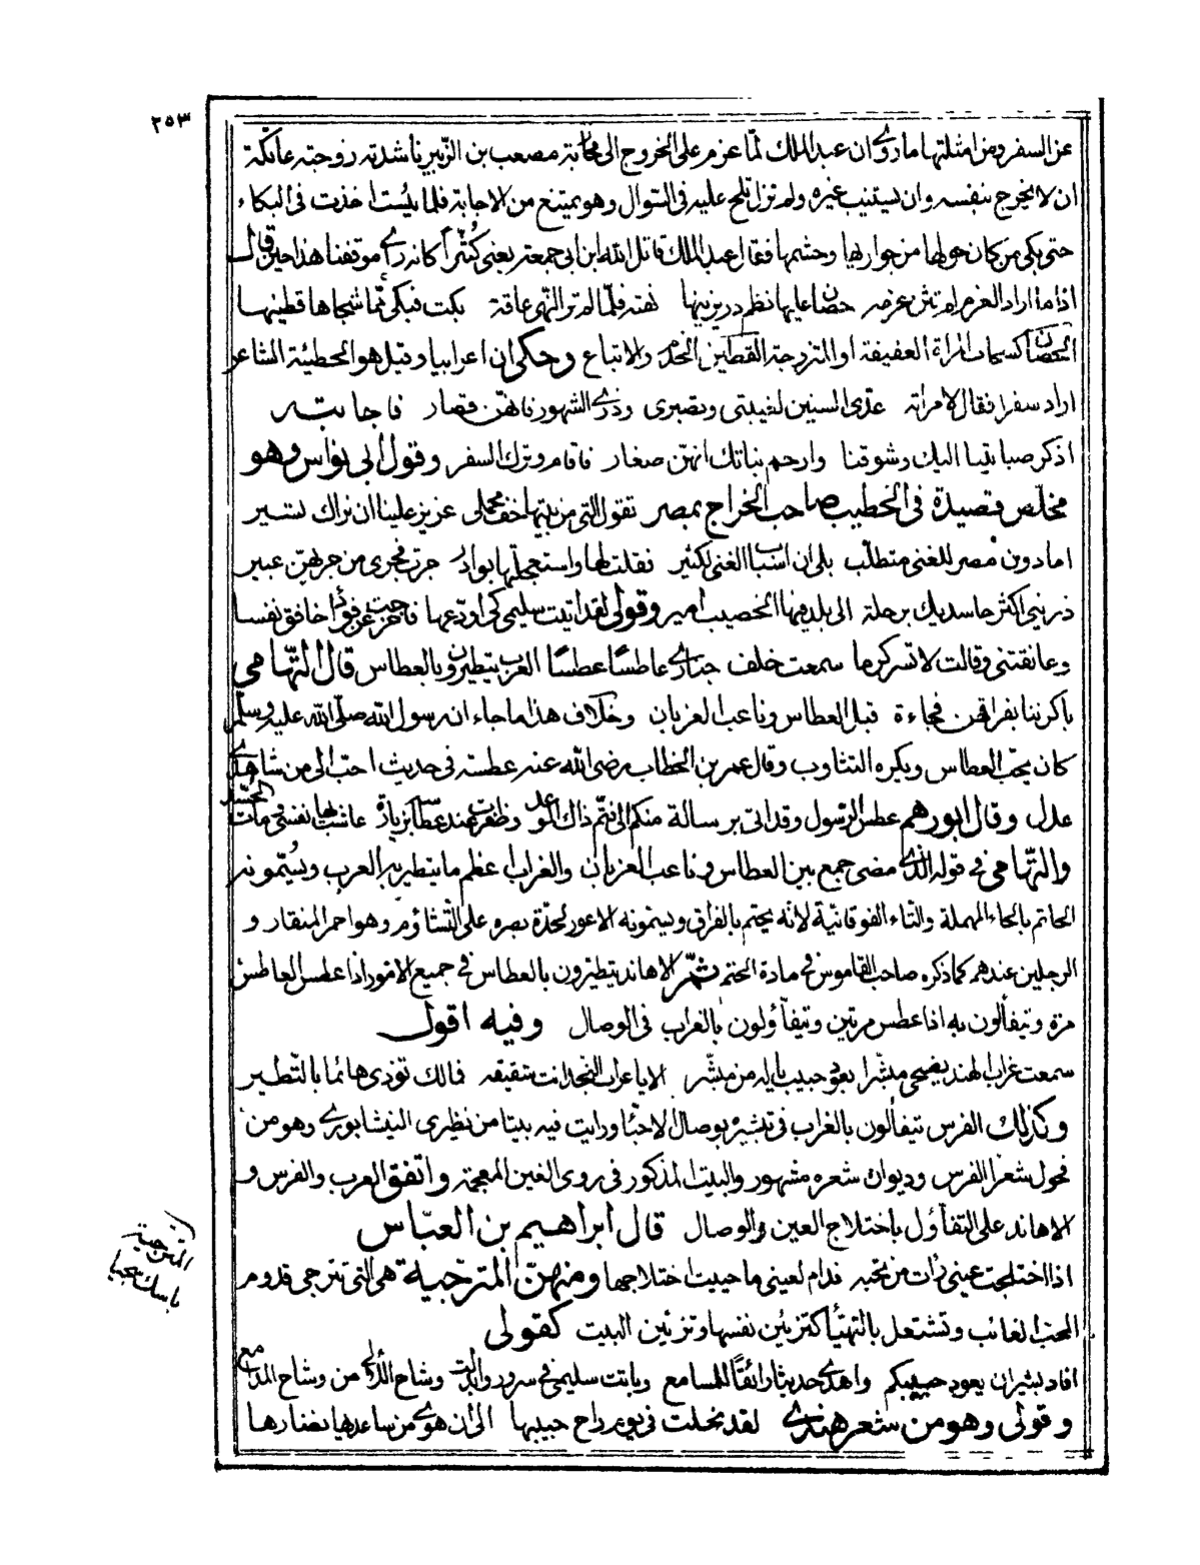 ٢٥٣
عن السفر ومن امثلتها ما روى ان عبد الملك لما عزم على الخروج الى محاربة مصعب بن الزبير ناشدته زوجته عاتكة
ان لا يخرج بنفسه وان يستنيب غيره ولم تزل تلح عليه فى السؤال وهو يمتنع من الاجابة فلما يئست اخذت فى البكاء
حتى بكى من كان حولها من جواريها وحشمها فقال عبد الملك قاتل الله ابن ابى جمعة يعنى كُثيّراً كانه رأى موقفنا هذا حين قال
اذا ما اراد الغزو لم تثن عزمه حصان عليها نظم در يزينها نهته فلمّا لم تر النهى عاقة بكت فبكى ممّا شجاها قطينها
الحصان كسحاب المراة العفيفة او المتزوجة القطين الخدم والاتباع وحكى ان اعرابيا وقيل هو الحطيئة الشاعر
اراد سفرا فقال لامراته عدّى السنين لغيبتى وتصبرى وذرى الشهور فانهنّ قصار فاجابته
اذكر صبابتنا اليك وشوقنا وارحم بناتك انهنّ صغار فاقام وترك السفر وقول ابى نواس وهو
مخلص قصيدة فى الخطيب صاحب الخراج بمصر تقول التى من بيتها خف محملى عزيز علينا ان نراك تسير
اما دون مصر للغنى متطلّب بلى ان اسباب الغنى لكثير فقلت لها واستعجلتها بوادر جرت فجرى من جريهنّ عبير
ذرينى اكثر حاسديك برحلة الى بلد فيها الخصيب امير وقولى لقد اتيت سليمى كى اودعها
وعانقتنى وقالت لا تسر كرما سمعت خلف جدارى عاطسًا عطسًا العرب يتطيرون بالعطاس قال التهامى
باكرننا بفراقهن فجاءة قبل العطاس وناعب الغربان وخلاف هذا ما جاء ان رسول الله صلى الله عليه وسلم
كان يحب العطاس ويكره التثاوب وقال عمر بن الخطاب رضى الله عنه عطسة فى حديث احب الى من شاهدى
عدل وقال ابو رهم عطس الرسول وقد اتى برسالة منكم الىّ فتمّ ذاك الموعد
والتهامى فى قوله الذى مضى جمع بين العطاس وناعب الغربان والغراب اعظم ما يتطير به العرب ويسمّونه
الحاتم بالحاء المهملة والتاء الفوقانية لانه يحتم بالفراق ويسمونه الاعور لحدّة بصره على التشاؤم وهو احمر المنقار و
الرجلين عندهم كما ذكره صاحب القاموس فى مادة الحتم ثمّ الاهاند يتطيّرون بالعطاس فى جميع الامور اذا عطس العاطس
مرة ويتفألون به اذا عطس مرتين ويتفأولون بالغراب فى الوصال وفيه اقول
سمعت غراب الهند يضحى مبشّرا بعود حبيب يا له من مبشّر الا يا غراب النجد انت شقيقه فمالك تؤذى هائما بالتطير
وكذلك الفرس يتفألون بالغراب فى تبشيره بوصال الاحبّا ورايت فيه بيتا من نظيرى النيشابورى وهو من
فحول شعرا الفرس وديوان شعره مشهور والبيت المذكور فى روى الغين المعجمة واتفق العرب والفرس و
الاهاند على التفأؤل باختلاج العين فى الوصال قال ابراهيم بن العبّاس
اذا اختلجت عينى رأت من تحبه فدام لعينى ما حييت اختلاجها ومنهنّ المترجية هى التى تترجى قدوم
المحب الغائب وتشتغل بالتهيّأ كتزيين نفسها وتزيين البيت كقولى
افاد بشيران يعود حبيبكم واهدى حديثا رائقًا للمسامع وباتت سليمى فى سرور وابدلت وشاح اللآلى من وشاح المدامع
وقولى وهو من شعر هندى لقد نحلت فى يوم راح حبيبها الى ان هوى من ساعديها نضارها
المترجية